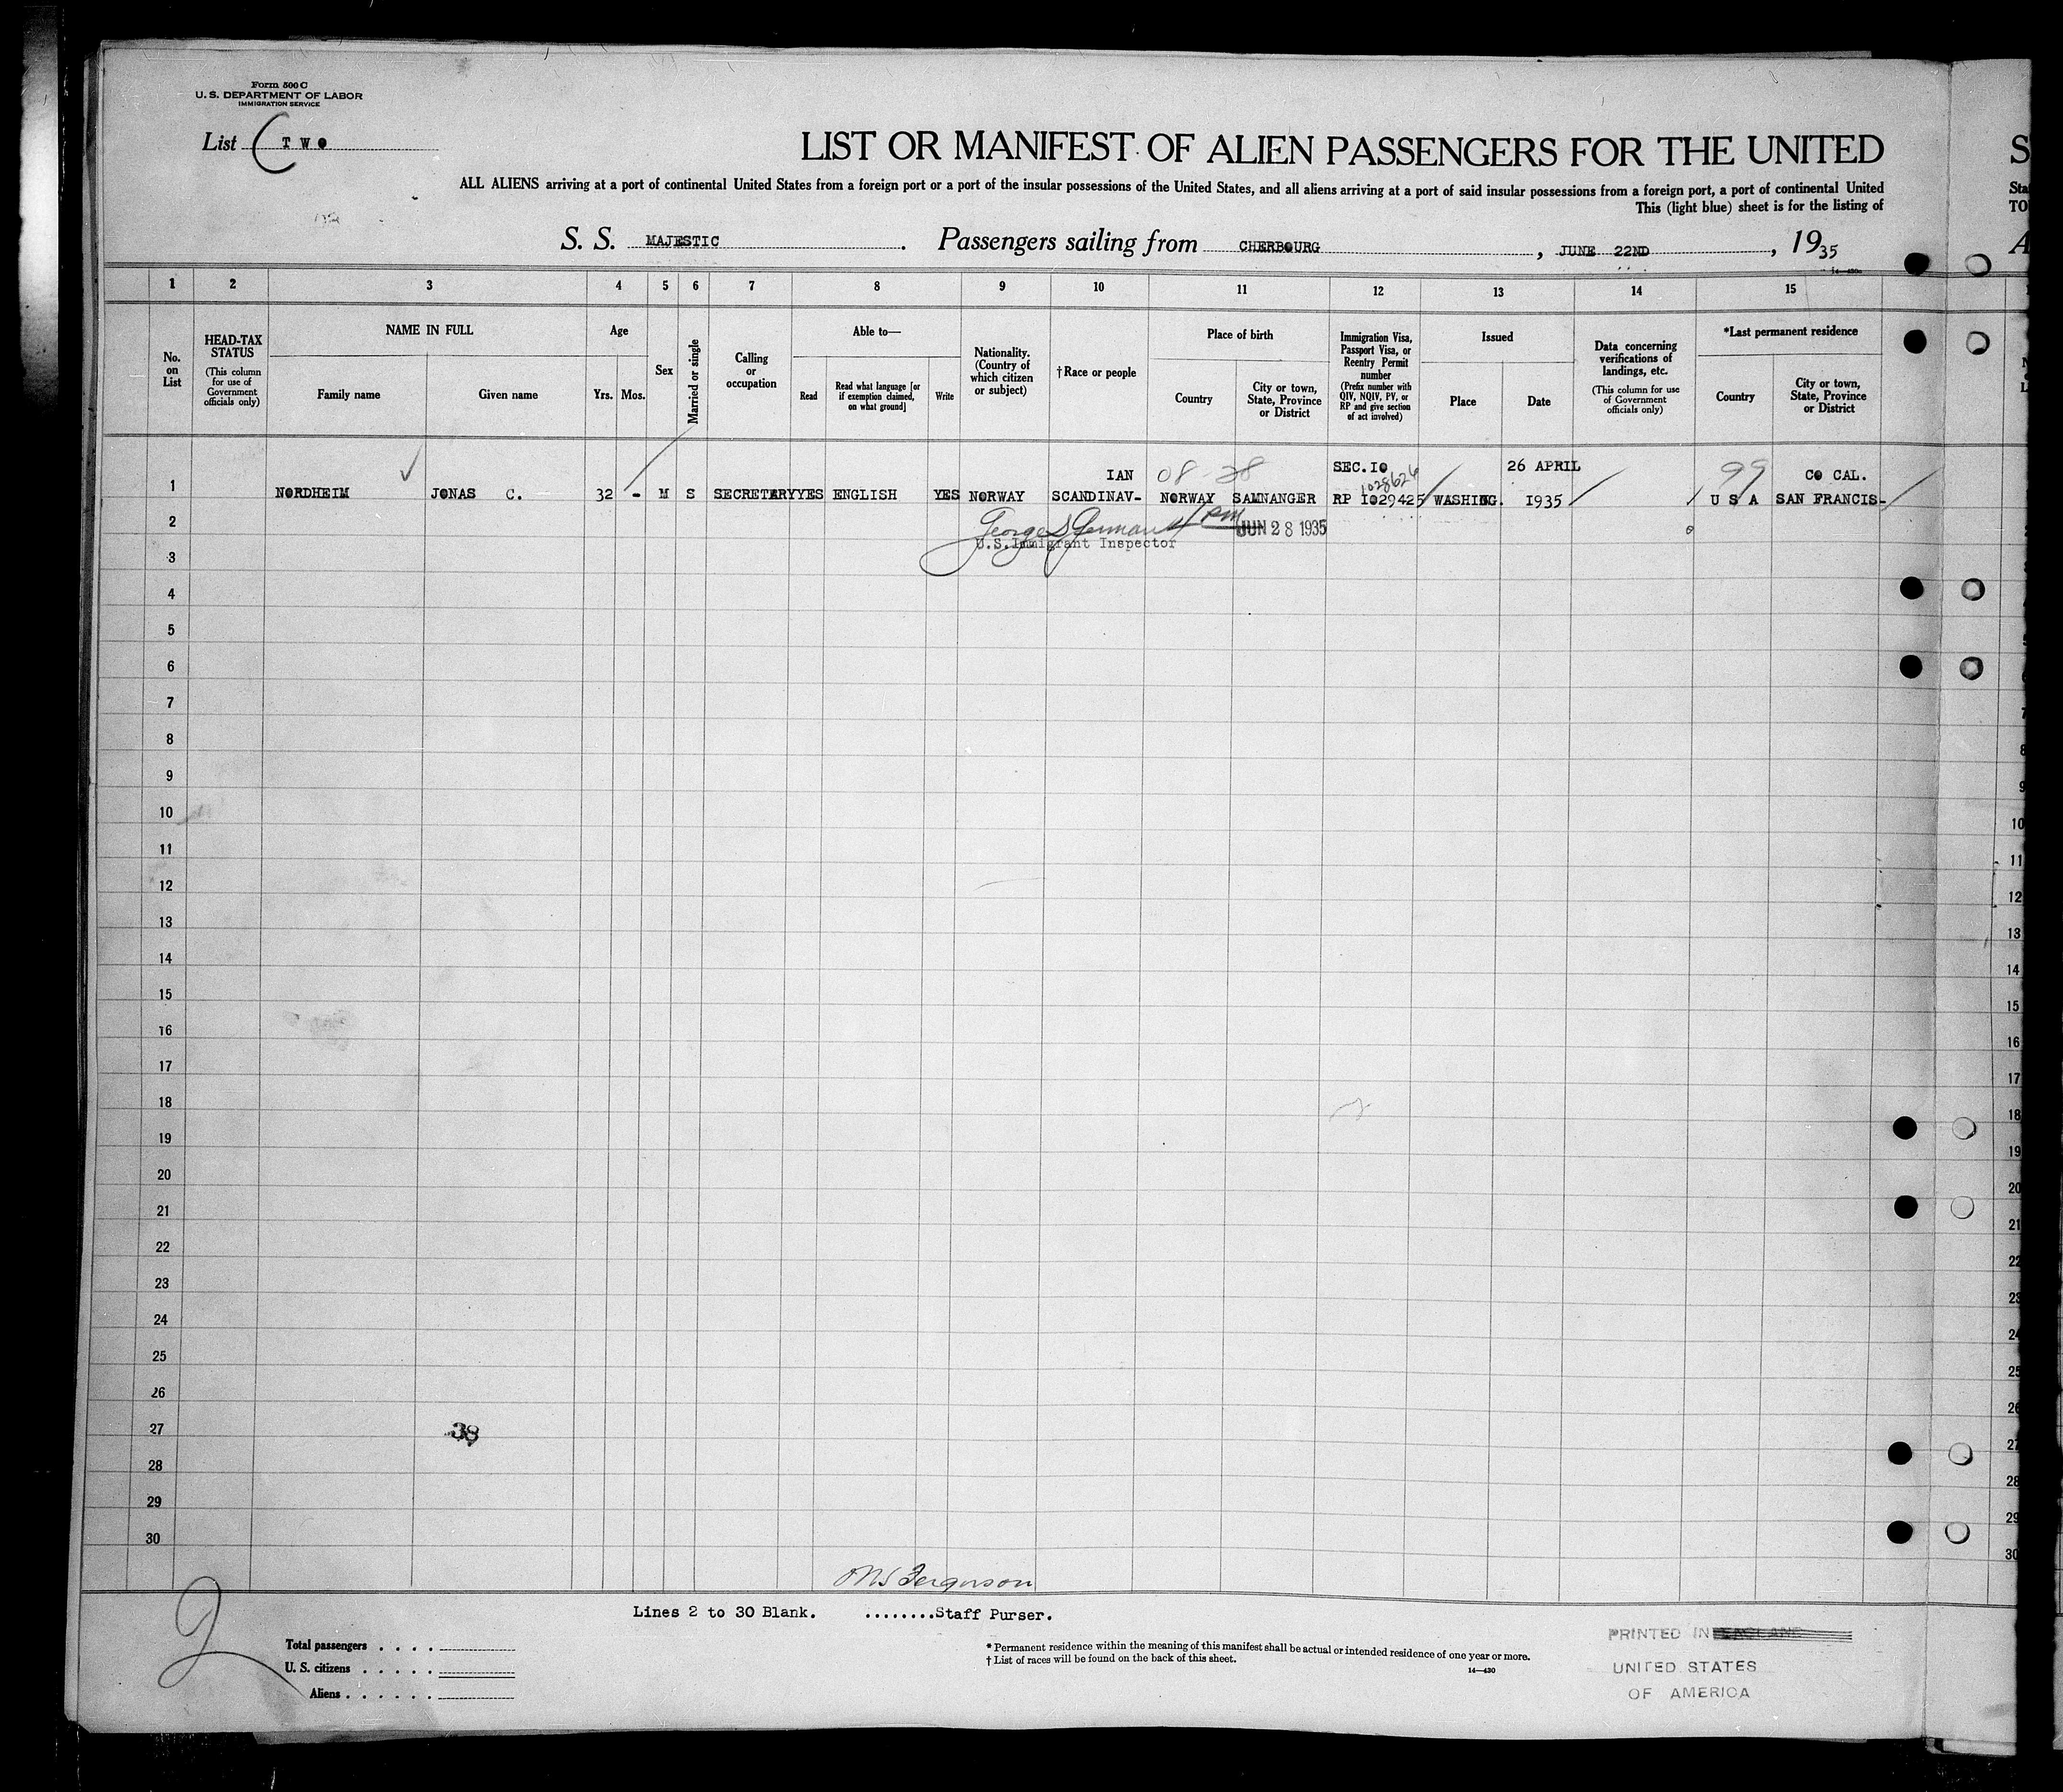 Form 500 C
U. S. DEPARTMENT OF LABOR
IMMIGRATION SERVICE
List TWO
LIST OR MANIFEST OF ALIEN PASSENGERS FOR THE UNITED
ALL ALIENS arriving at a port of continental United States from a foreign port or a port of the insular possessions of the United States, and all aliens arriving at a port of said insular possessions from a foreign port, a port of continental United
This (light blue) sheet is for the listing of
S. S. MAJESTIC . Passengers sailing from CHERBOURG , JUNE 22ND , 1935
1 2 3 4 5 6 7 8 9 10 11 12 13 14 15
No. on List
HEAD-TAX STATUS
(This column for use of Government officials only)
NAME IN FULL
Family name
Given name
Age
Yrs.
Mos.
Sex
Married or single
Calling or occupation
Able to—
Read
Read what language [or if exemption claimed, on what ground]
Write
Nationality. (Country of which citizen or subject)
†Race or people
Place of birth
Country
City or town, State, Province or District
Immigration Visa, Passport Visa, or Reentry Permit number
(Prefix number with QIV, NQIV, PV, or RP and give section of act involved)
Issued
Place
Date
Data concerning verifications of landings, etc.
(This column for use of Government officials only)
*Last permanent residence
Country
City or town, State, Province or District
IAN 08-38 SEC.IO 26 APRIL 99 CO CAL.
1028626
1 NORDHEIM JONAS C. 32 - M S SECRETARY YES ENGLISH YES NORWAY SCANDINAV- NORWAY SAMNANGER RP IO29425 WASHING. I935 U S A SAN FRANCIS-
2 JUN 28 1935
U.S.Immigrant Inspector
3
4
5
6
7
8
9
10
11
12
13
14
15
16
17
18
19
20
21
22
23
24
25
26
27 38
28
29
30
Ferguson
Lines 2 to 30 Blank. ........Staff Purser.
2
Total passengers . . . .
U. S. citizens . . . . .
Aliens . . . . . .
* Permanent residence within the meaning of this manifest shall be actual or intended residence of one year or more.
† List of races will be found on the back of this sheet.
14—430
PRINTED IN ENGLAND
UNITED STATES
OF AMERICA